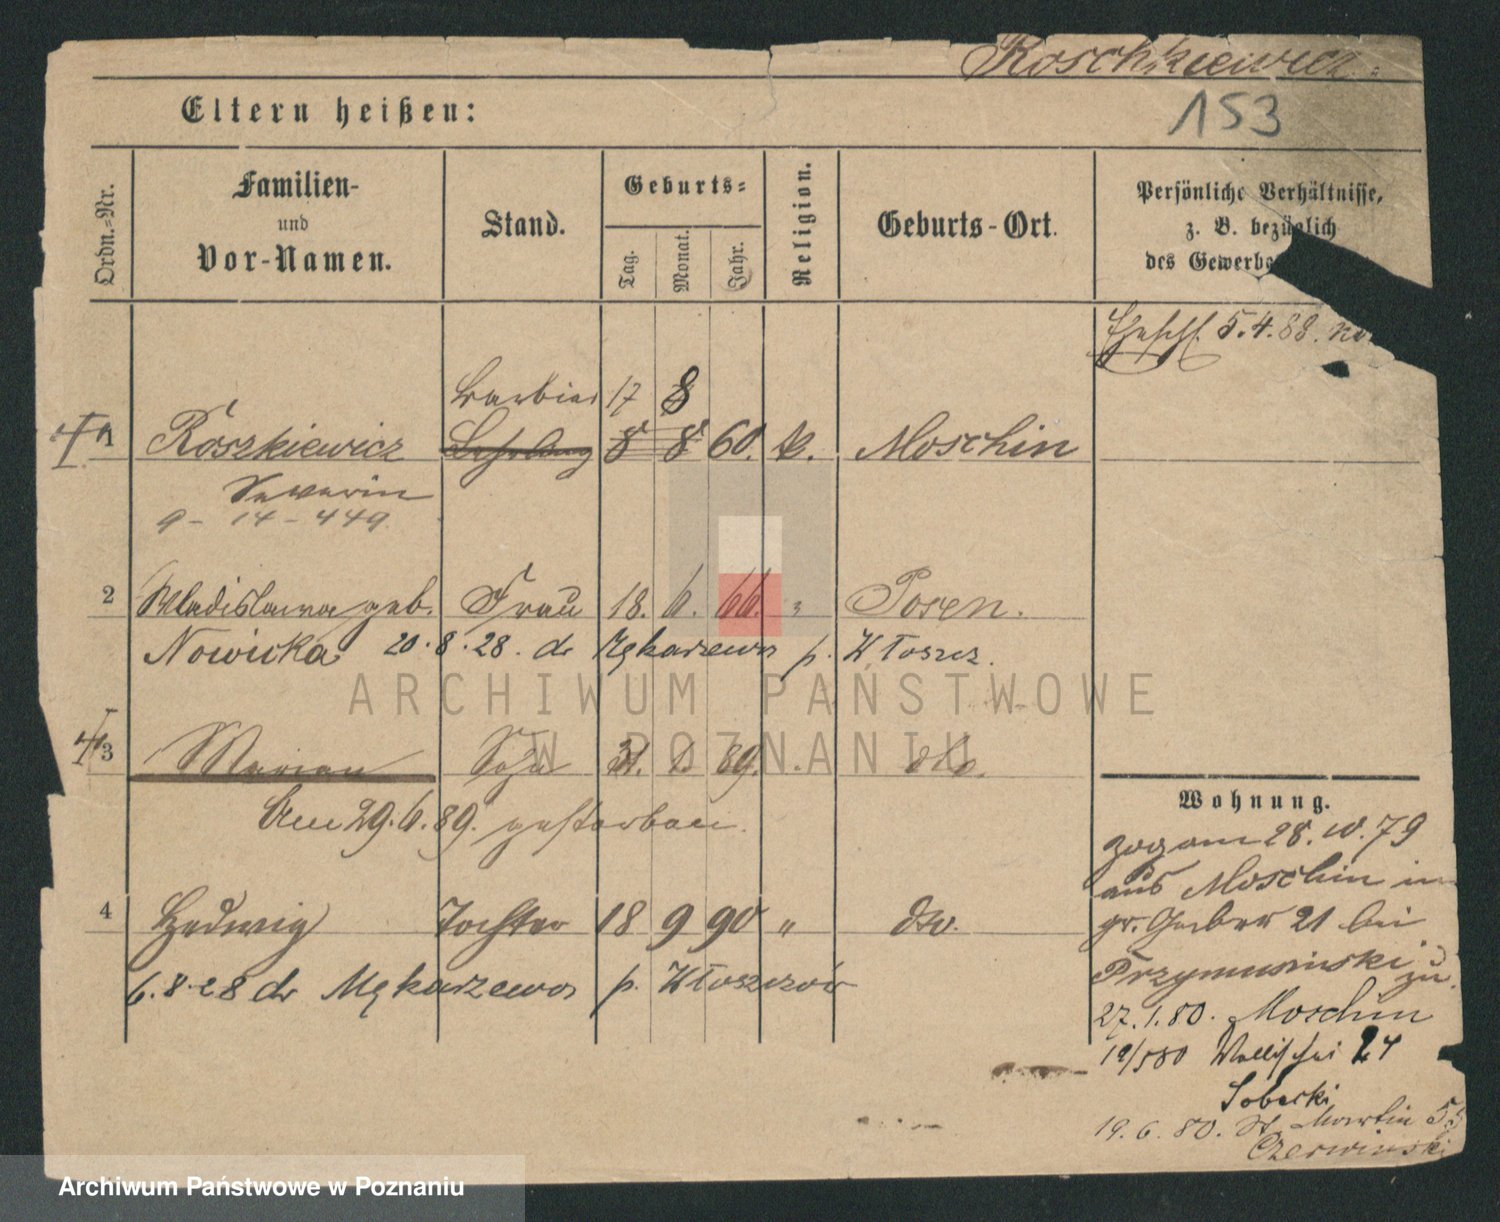 Roschkiewicz.
153
Eltern heißen:
Ordn.-Nr.
Familien-
und
Vor-Namen.
Stand.
Geburts-
Tag.
Monat.
Jahr.
Religion.
Geburts-Ort.
Persönliche Verhältnisse,
z. B. bezüglich
des Gewerbe
5.4.88.
Barbier 17 8
1 Roszkiewicz Lehrling 8 8 60. k. Moschin
Severin
9 - 14 - 449.
2 Wladislawa geb. Frau 18. 6. 66. " Posen.
Nowicka 20.8.28. do Mękarzewo p. Włoszcz.
3 Marian Sohn 31. 89. dto.
Am 29.6.89. gestorben.
4 Hedwig Tochter 18 9 90 " dto.
6.8.28 do Mękarzewo p. Włoszczów
Wohnung.
zog am 28.10.79
aus Moschin in
gr. Gerber 21 bei
Przymusinski zu.
27.1.80. Moschin
19/5 80 Wallischei 24
Sobecki
19.6.80. St. Martin 55
Czerwinski
ARCHIWUM PAŃSTWOWE
W POZNANIU
Archiwum Państwowe w Poznaniu